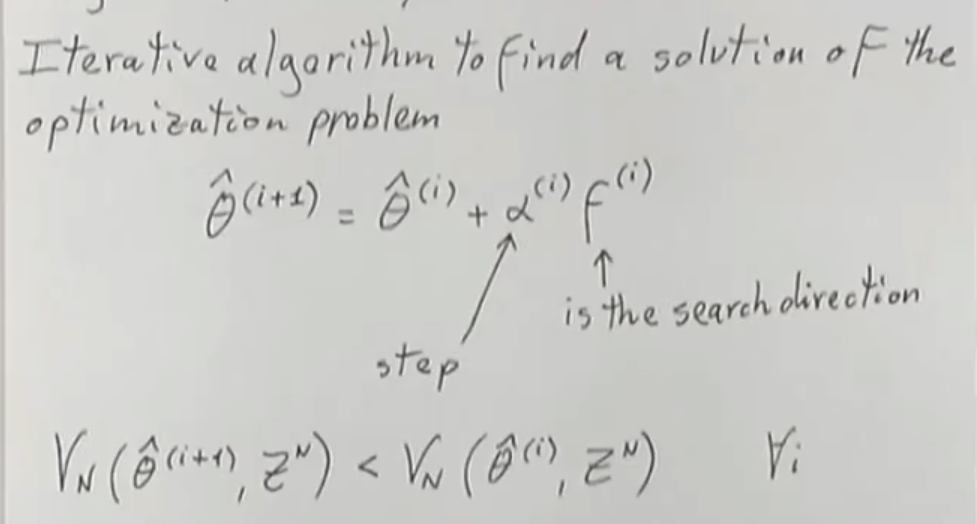 Iterative algorithm to find a solution of the
optimization problem
θ̂^(i+1) = θ̂^(i) + α^(i) f^(i)
is the search direction
step
V_N(θ̂^(i+1), Z^N) < V_N(θ̂^(i), Z^N) ∀i